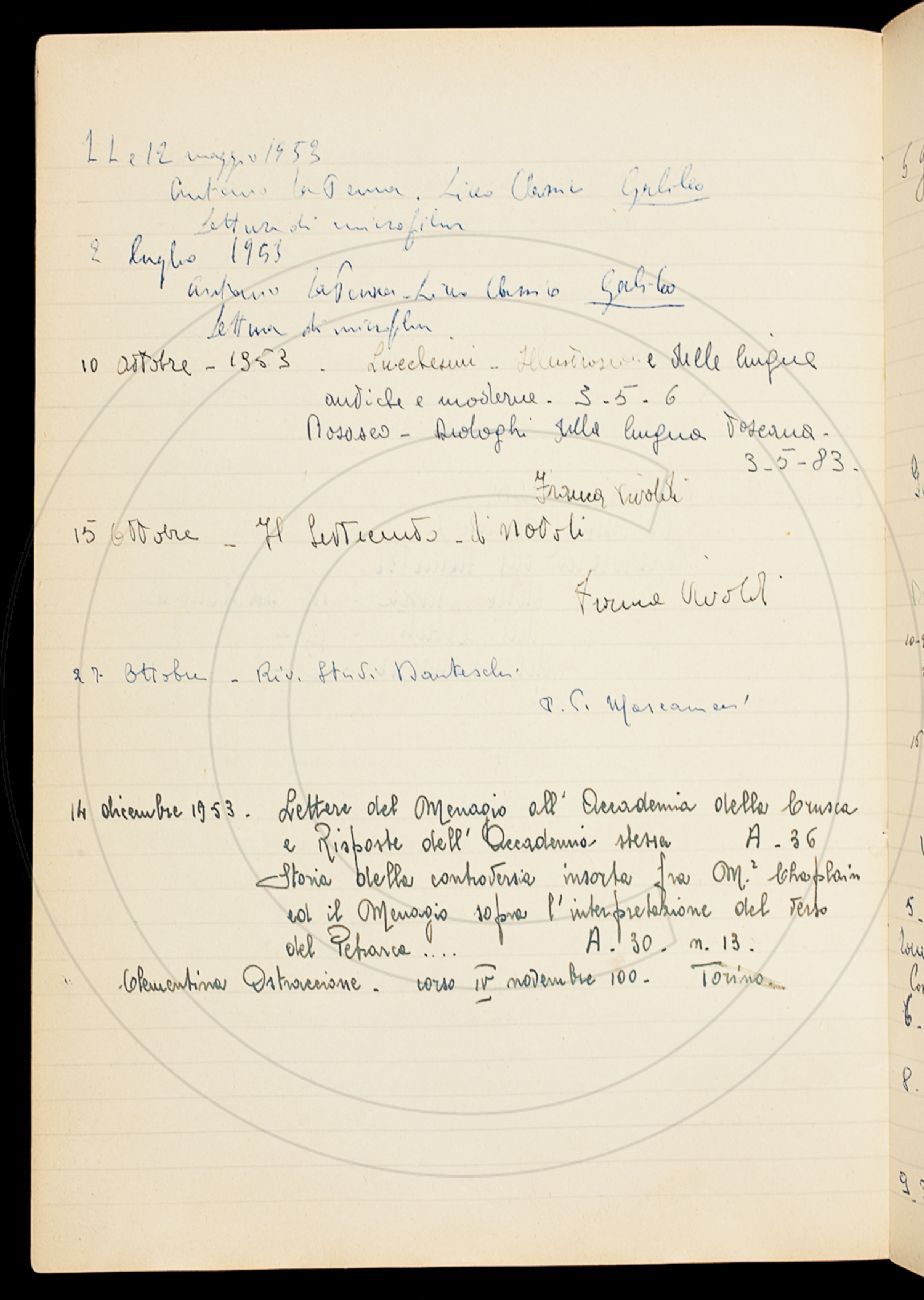 11 e 12 maggio 1953
Antonio La Penna. Liceo Classico Galileo
Lettura di microfilm
2 luglio 1953
Antonio La Penna - Liceo Classico Galileo
Lettura di microfilm
10 ottobre - 1953 - Lucchesini - Illustrazione delle lingue
antiche e moderne - 3 - 5 - 6
Rosasco - Dialoghi della lingua Toscana -
3 - 5 - 83 -
Franca Vivoldi
15 Ottobre - Il Settecento - di Natali
Franca Vivoldi
27 Ottobre - Riv. Studi Danteschi
14 dicembre 1953. Lettere del Menagio all' Accademia della Crusca
e Risposte dell' Accademia stessa A - 36
Storia della controversia insorta fra M.ʳ Chaplain
ed il Menagio sopra l'interpretazione del verso
del Petrarca .... A. 30. n. 13.
Clementina - corso IV novembre 100 - Torino.